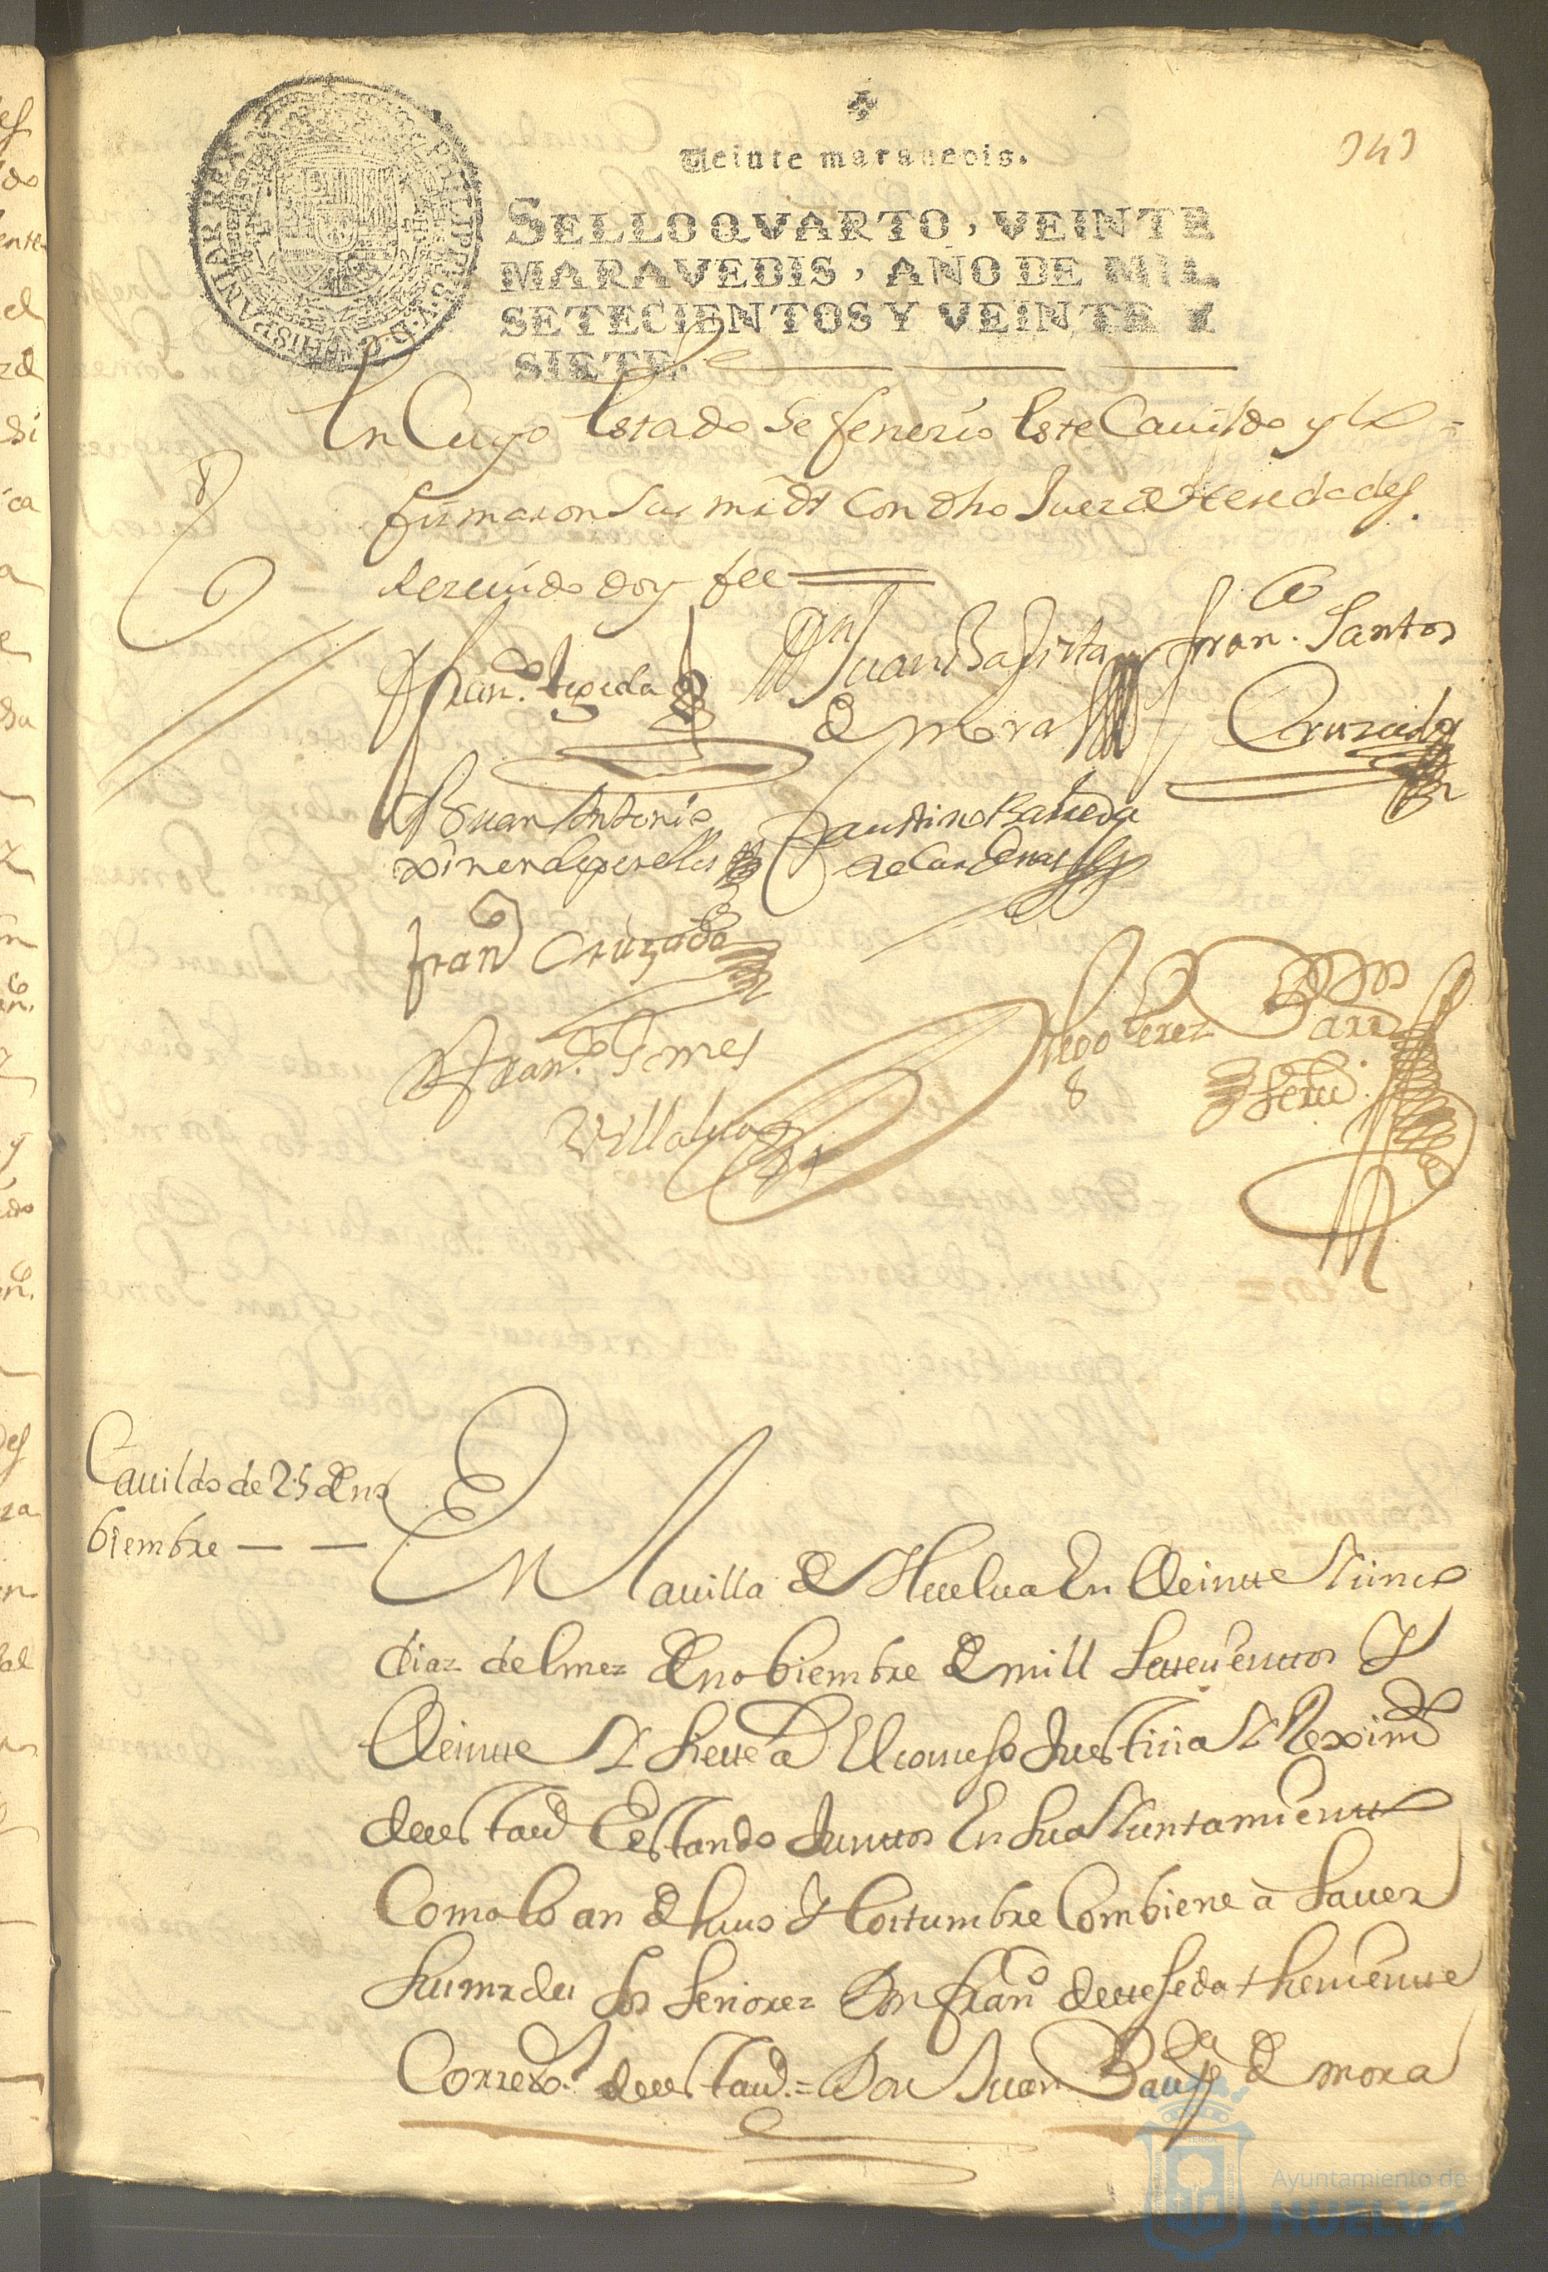 Veinte maravedis.
SELLO QVARTO, VEINTE
MARAVEDIS, AÑO DE MIL
SETECIENTOS Y VEINTE Y
SIETE.
En Cuyo Estado Se fenecio Este Cauildo y lo
firmaron Sus mrds Con dho Juez de Heredades
de
Rezeuido doy fee
franco. tegeda
Dn Juan Bautista
de mora
franco. Santos
Cruzado
Juan Antonio
ximenes perelles
faustino Barreda
de Cardenas
franco Cruzado
franco. Gomes
Villalua
Diego Perez
Cauildo de 25 de no
biembre
En la uilla de Huelua En Veinte Y cinco
diaz del mez de nobiembre de mill Setecientos Y
Veinte Y Siete a El conceso Justicia Y Reximto
de esta uª Estando Juntos En su a Yuntamiento
Como lo an de huso Y Costumbre Combiene à Sauer
Sus mrdes los Señorez Don franco de tegeda theniente
Correxor. de esta uª. = Don Juan Bauptta de mora
Ayuntamiento de
HUELVA